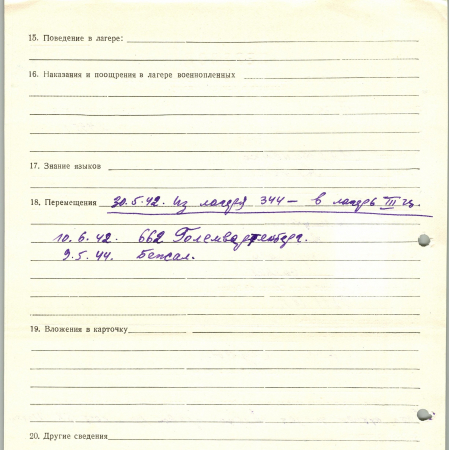 15. Поведение в лагере:
16. Наказания и поощрения в лагере военнопленных
17. Знание языков
18. Перемещения 30.5.42. Из лагеря 344 – в лагерь III
10.6.42. 662
9.5.44. Бежал.
19. Вложения в карточку
20. Другие сведения